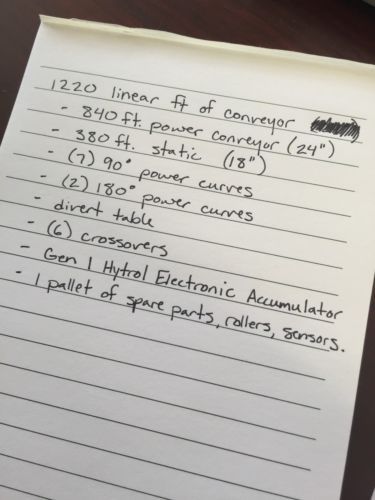 1220 linear ft of conveyor
- 840 ft. power conveyor (24")
- 380 ft. static (18")
- (7) 90° power curves
- (2) 180° power curves
- divert table
- (6) crossovers
- Gen 1 Hytrol Electronic Accumulator
- 1 pallet of spare parts, rollers, sensors.